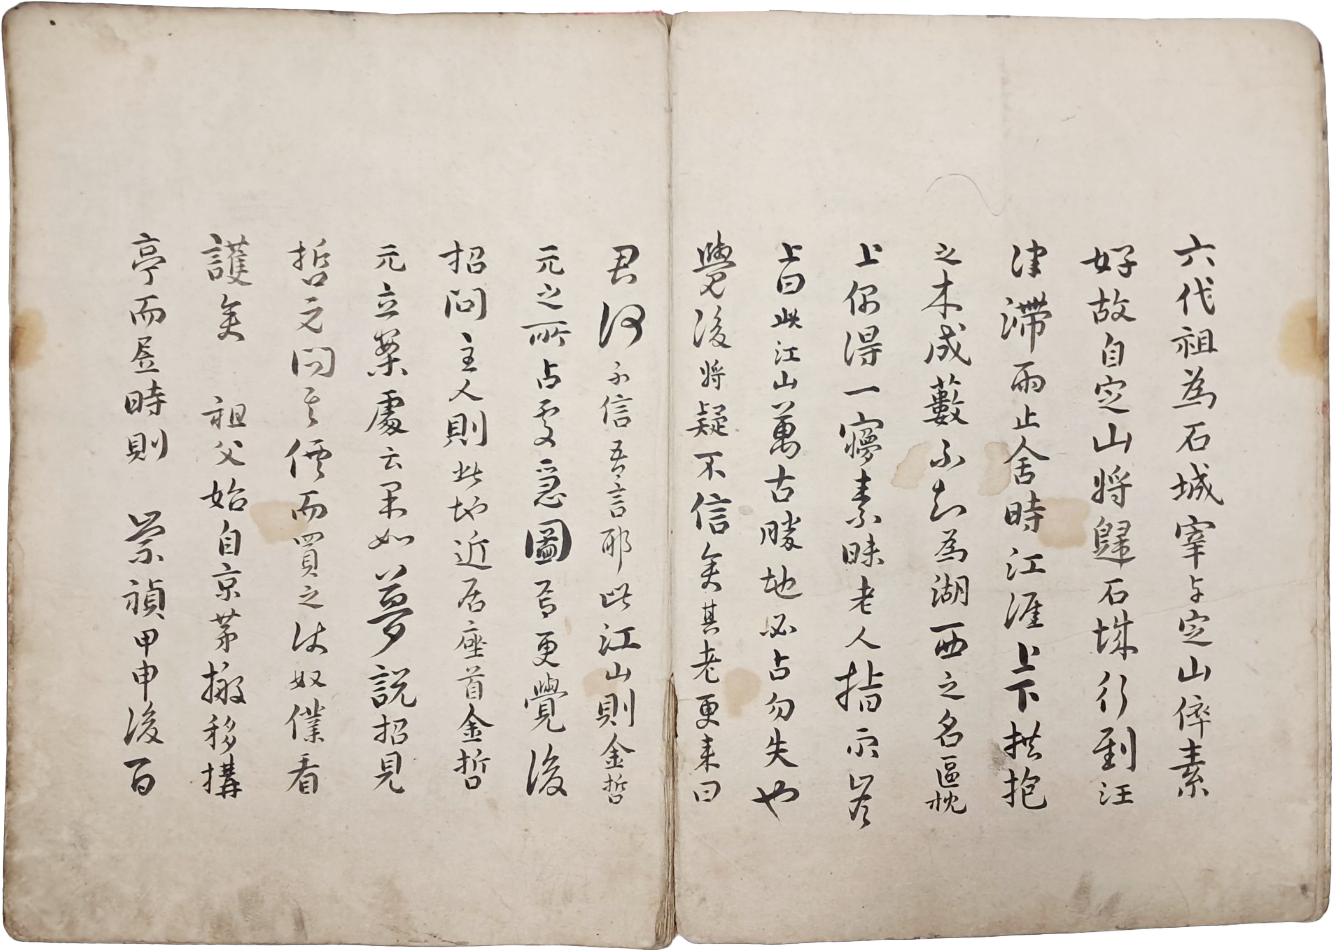 六代祖為石城宰与定山倅素
好故自定山將歸石城行到汪
津滯雨止舍時江涯上下拱抱
之木成藪不知為湖西之名區枕
上偶得一夢素昧老人指示岸
上曰此江山萬古勝地必占勿失也
覺後將疑不信矣其老更来曰
君何不信吾言耶此江山則金哲
元之所占處急圖焉更覺後
招問主人則此地近居座首金哲
元立案處云果如夢說招見
哲元問其價而買之使奴僕看
護矣 祖父始自京茅搬移搆
亭而居時則 崇禎甲申後百